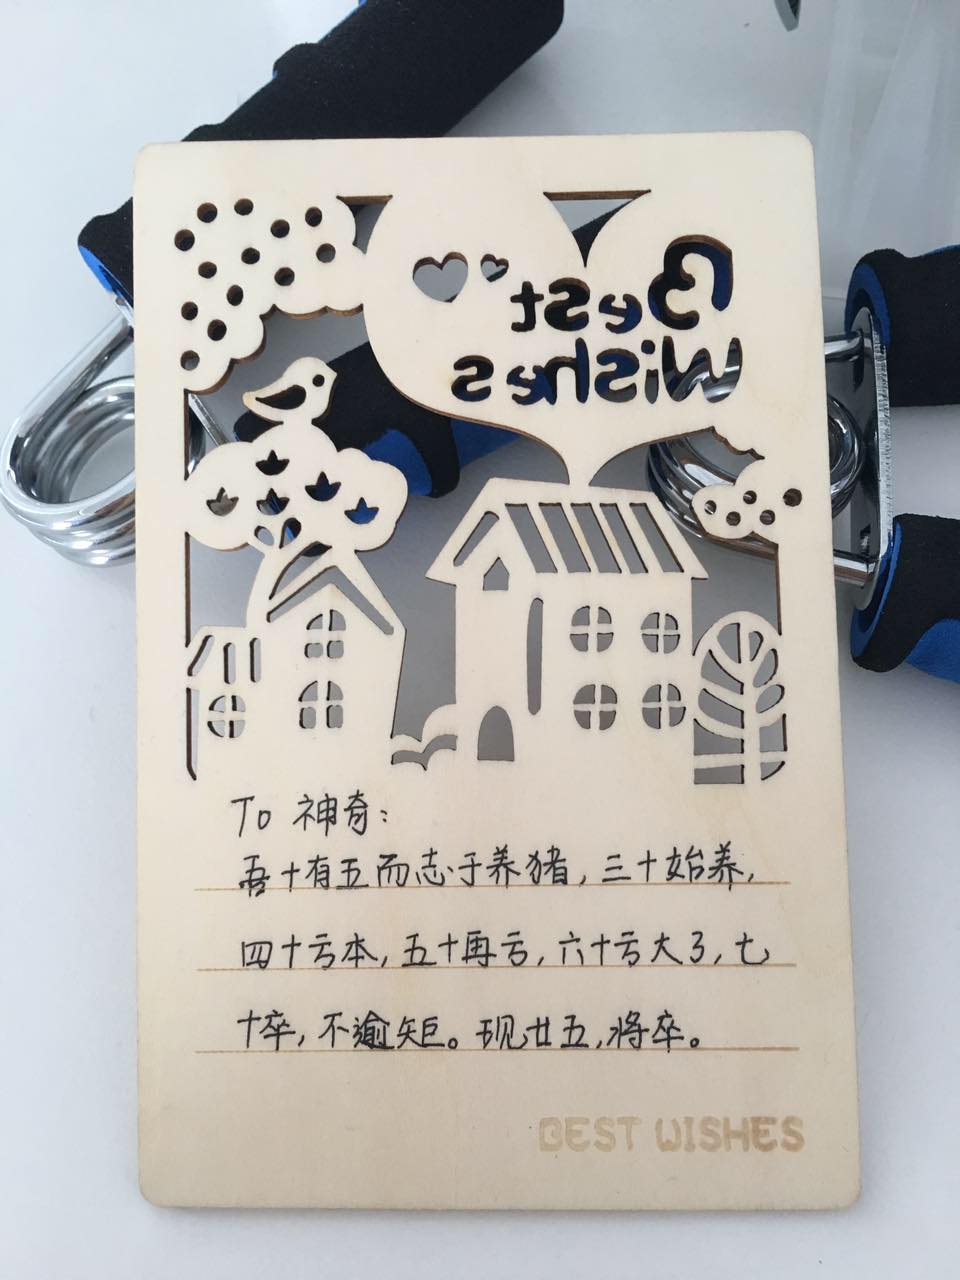 Best
Wishes
To 神奇:
吾十有五而志于养猪,三十始养,
四十亏本,五十再亏,六十亏大了,七
十卒,不逾矩。现廿五,将卒。
BEST WISHES